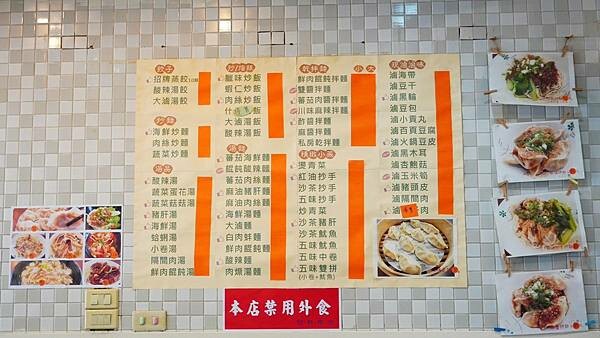 餃子
招牌蒸餃
酸辣湯餃
大滷湯餃
炒麵
海鮮炒麵
肉絲炒麵
蔬菜炒麵
湯
酸辣湯
蔬菜蛋花湯
蔬菜菇菇湯
豬肝湯
海鮮湯
蛤蜊湯
小卷湯
隔間肉湯
鮮肉餛飩湯
臘味炒飯
蝦仁炒飯
肉絲炒飯
什 飯
大滷湯飯
酸辣湯飯
湯麵
蕃茄海鮮麵
餛飩酸辣麵
蕃茄肉絲麵
麻油豬肝麵
麻油 麵
海鮮湯麵
大滷麵
白肉蚌麵
鮮肉餛飩麵
酸辣麵
肉燥湯麵
乾拌麵 小 大
鮮肉餛飩拌麵
雙醬拌麵
蕃茄肉醬拌麵
川味麻辣拌麵
酢醬拌麵
麻醬拌麵
私房乾拌麵
精緻小菜
燙青菜
紅油抄手
沙茶抄手
五味抄手
炒青菜
沙茶豬肝
沙茶魷魚
五味魷魚
五味中卷
五味雙拼
(小卷+魷魚)
滷味
滷海帶
滷豆干
滷黑輪
滷豆包
滷小貢丸
滷百頁豆腐
滷火鍋豆皮
滷黑木耳
滷杏鮑菇
滷玉米筍
滷豬頭皮
滷隔間肉
滷 肉
本店禁用外食